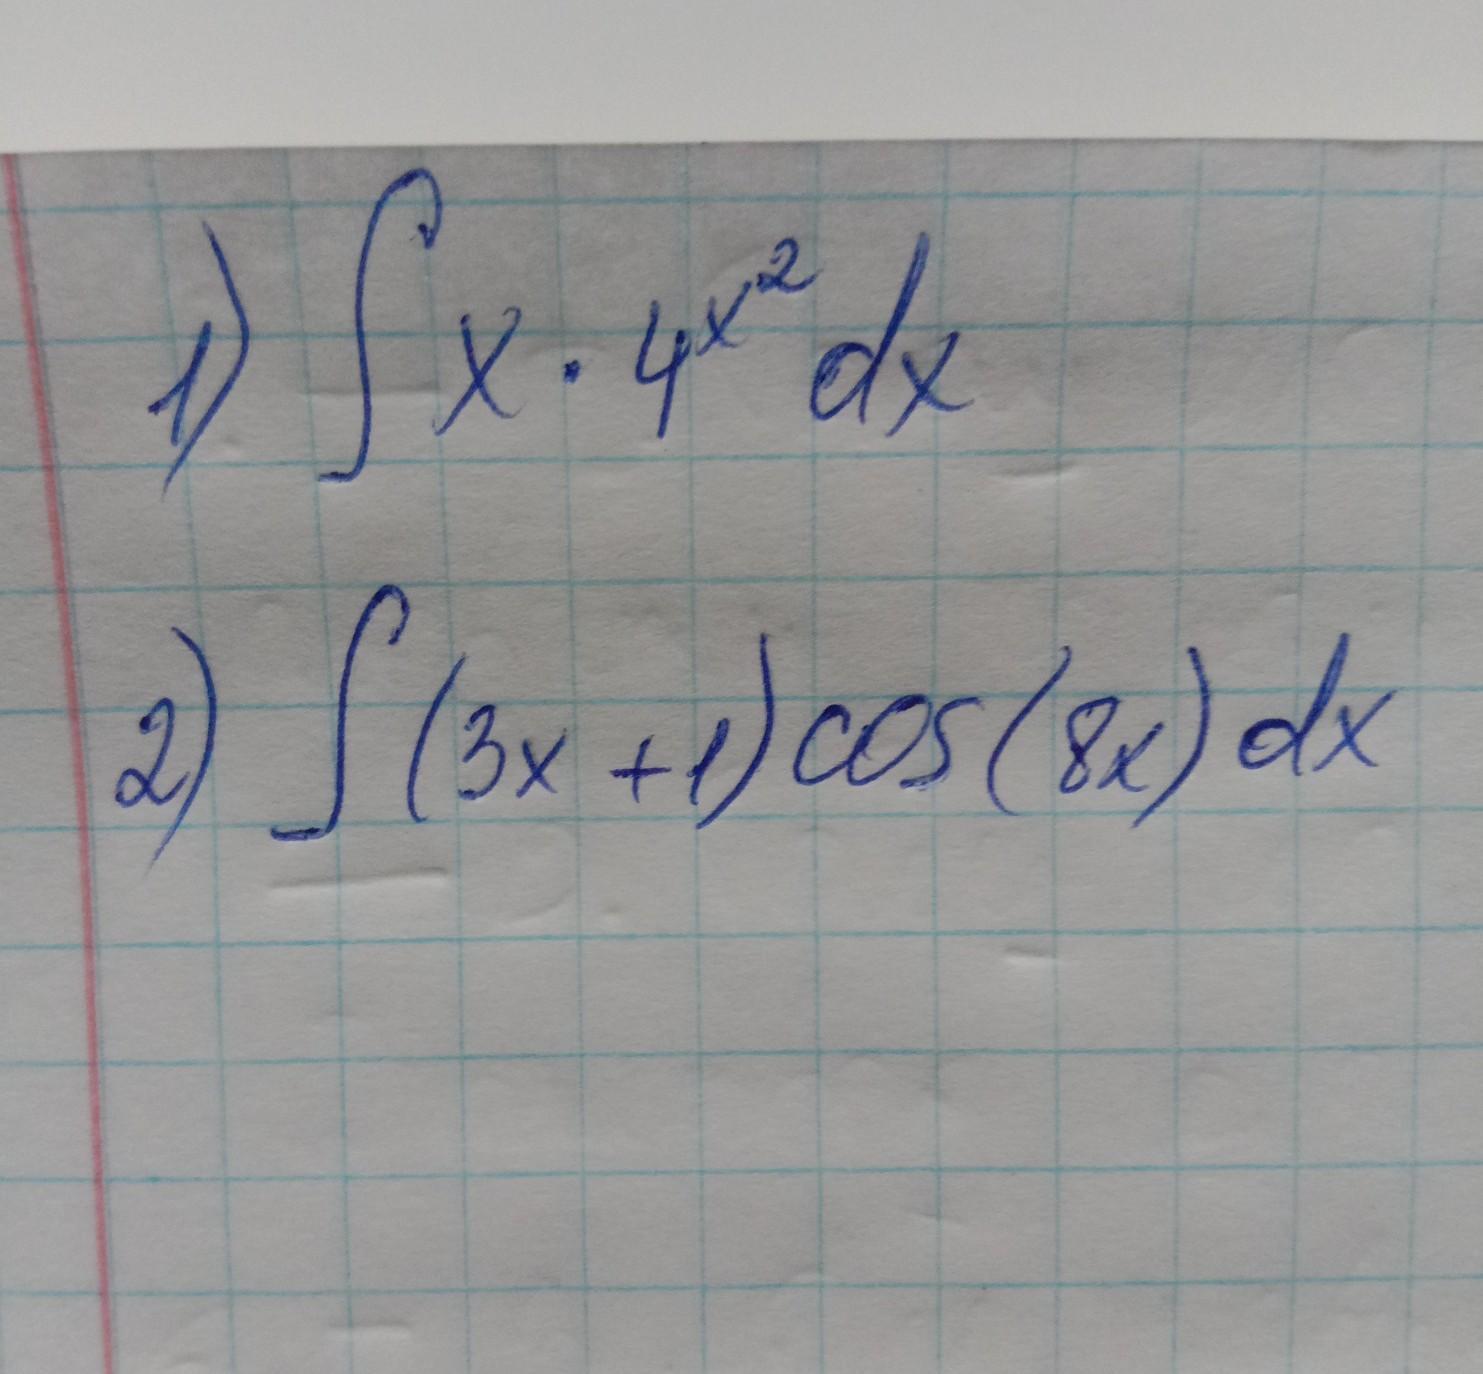 1) ∫ x · 4^{x^2} dx
2) ∫ (3x + 1) cos(8x) dx